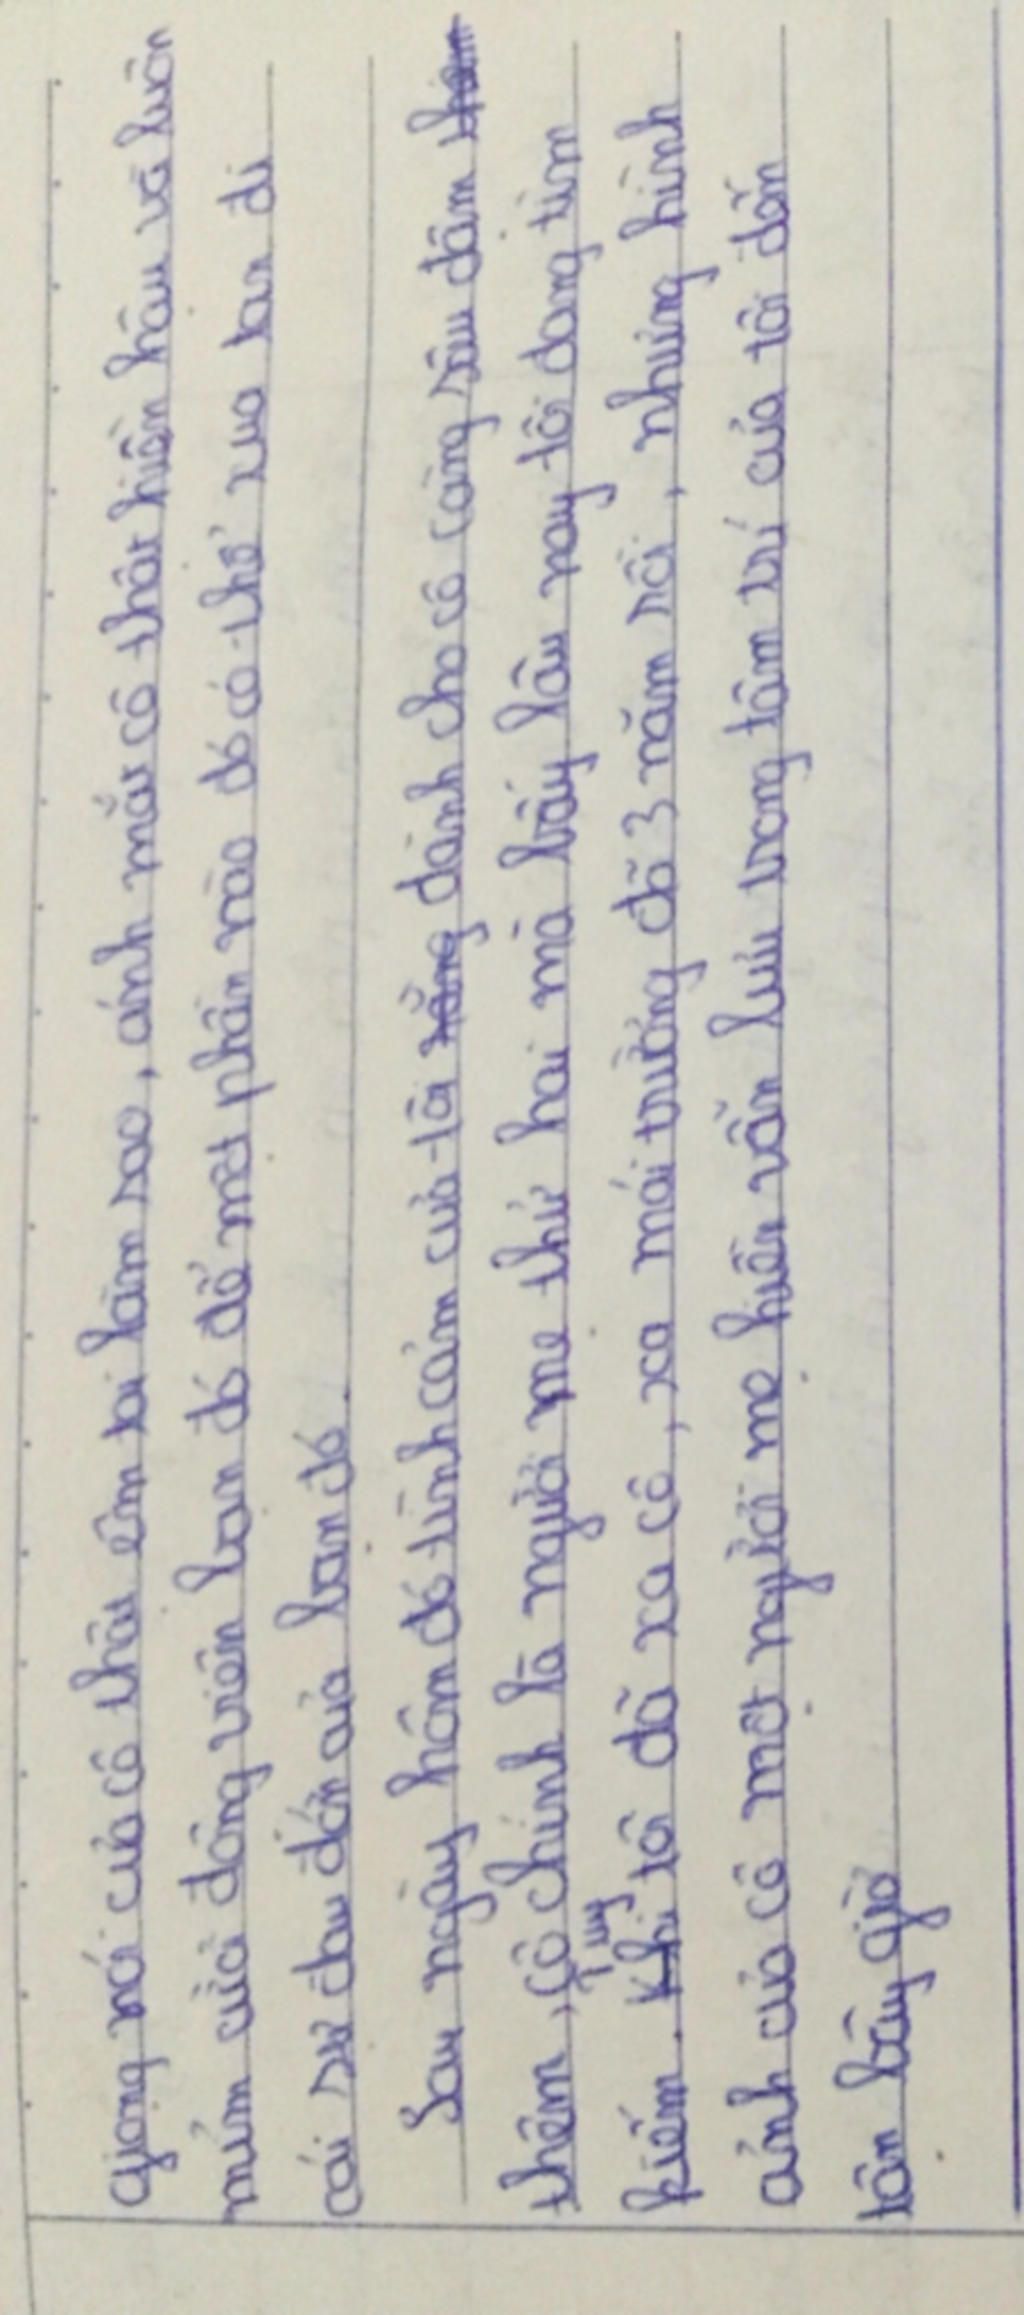 giọng nói của cô thật êm tai làm sao, ánh mắt cô thật hiền hậu và luôn
mỉm cười động viên bạn đó để một phần nào đó có thể xua tan đi
cái sự đau đớn của bạn đó.
Sau ngày hôm đó tình cảm của tôi dành cho cô càng sâu đậm
thêm, cô chính là người mẹ thứ hai mà bấy lâu nay tôi đang tìm
kiếm. Tuy tôi đã xa cô, xa mái trường đã 3 năm rồi, nhưng hình
ảnh của cô một người mẹ hiền vẫn lưu trong tâm trí của tôi đến
tận bây giờ